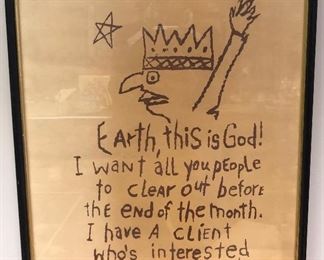 Earth, this is God!
I want all you people
to clear out before
the end of the month.
I have a client
who's interested